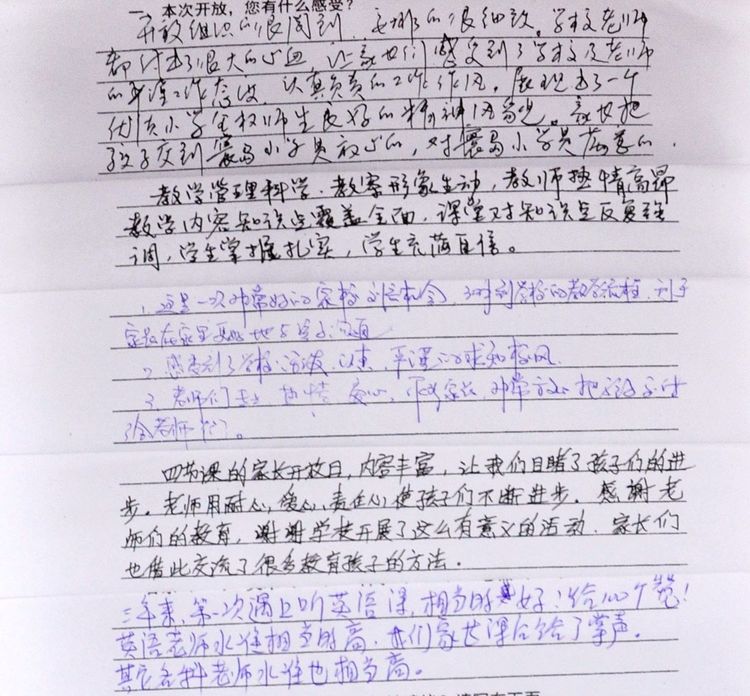 一、本次开放，您有什么感受？
开放组织的很周到，安排的很细致。学校老师
都付出了很大的心血，让家长们感受到了学校及老师
的工作态度，认真负责的工作作风。展现出了一个
优质小学全校师生良好的精神风貌。家长把
孩子交到寰岛小学是放心的，对寰岛小学是满意的.
教学管理科学，教案形象生动，教师热情高昂
教学内容知识点覆盖全面，课堂对知识点反复强
调，学生掌握扎实，学生充满自信。
1、这是一次非常好的家校机会，了解到学校的教学流程，利于
家长在家里更好地
2、感受到了学校活泼、认真、严谨的求知校风
3、老师们热情、爱心，非常放心把孩子交付
给老师们。
四节课的家长开放日，内容丰富，让我们目睹了孩子们的进
步。老师用耐心，爱心，责任心使孩子们不断进步。感谢老
师们的教育，谢谢学校开展了这么有意义的活动．家长们
也借此交流了很多教育孩子的方法．
三年来，第一次遇上听英语课，相当的好！给100个赞！
英语老师水准相当的高，我们家长课后给了掌声。
其它各科老师水准也相当高。